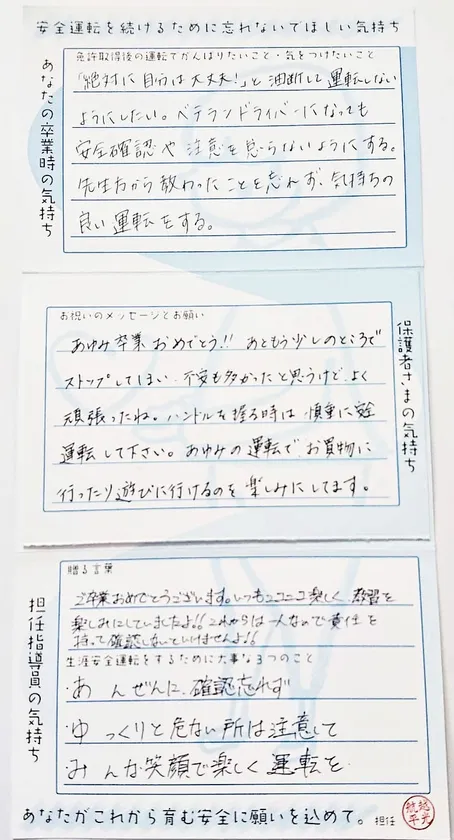 安全運転を続けるために忘れないでほしい気持ち
あなたの卒業時の気持ち
免許取得後の運転でがんばりたいこと・気をつけたいこと
「絶対に自分は大丈夫!」と油断して運転しない
ようにしたい。ベテランドライバーになっても
安全確認や注意を怠らないようにする。
先生方から教わったことを忘れず、気持ちの
良い運転をする。
保護者さまの気持ち
お祝いのメッセージとお願い
あゆみ卒業おめでとう!! あともう少しのところで
ストップしてしまい、不安も多かったと思うけど、よく
頑張ったね。ハンドルを握る時は、慎重に安全
運転して下さい。あゆみの運転で、お買物に
行ったり遊びに行けるのを楽しみにしてます。
担任指導員の気持ち
贈る言葉
ご卒業おめでとうございます。いつもニコニコ楽しく、教習を
楽しみにしていましたよ!!これからは一人なので責任を
持って確認しないといけませんよ!!
生涯安全運転をするために大事な3つのこと
・あんぜんに、確認忘れず
・ゆっくりと危ない所は注意して
・みんな笑顔で楽しく運転を
あなたがこれから育む安全に願いを込めて。 担任